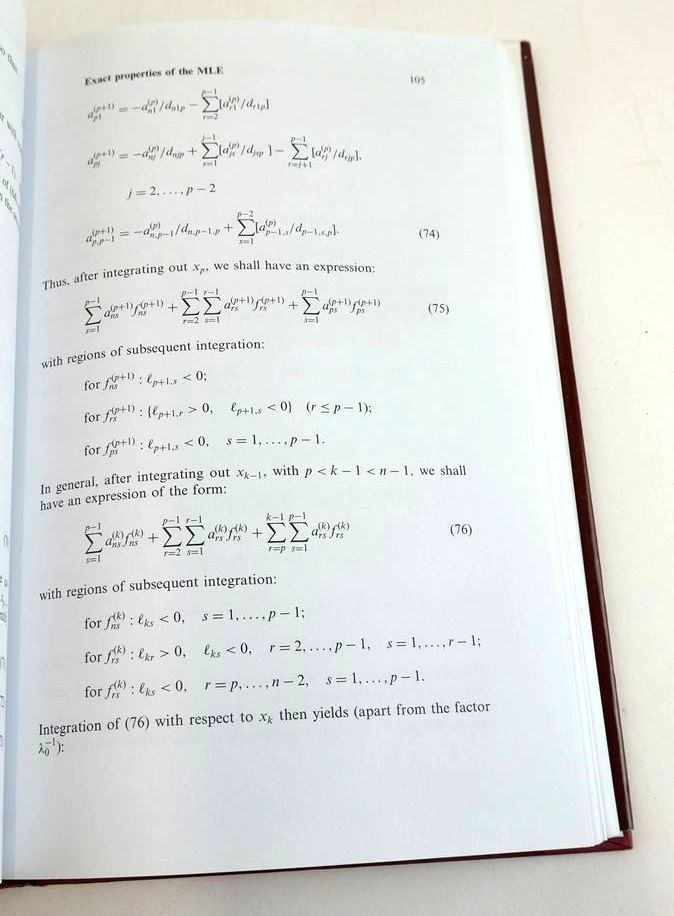 Exact properties of the MLE 105
a_{p1}^{(p+1)} = −a_{n1}^{(p)}/d_{n1p} − ∑_{r=2}^{p−1}[a_{r1}^{(p)}/d_{r1p}]
a_{pj}^{(p+1)} = −a_{nj}^{(p)}/d_{njp} + ∑_{s=1}^{j−1}[a_{js}^{(p)}/d_{jsp}] − ∑_{r=j+1}^{p−1}[a_{rj}^{(p)}/d_{rjp}],
j = 2,...,p − 2
a_{p,p−1}^{(p+1)} = −a_{n,p−1}^{(p)}/d_{n,p−1,p} + ∑_{s=1}^{p−2}[a_{p−1,s}^{(p)}/d_{p−1,s,p}]. (74)
Thus, after integrating out x_p, we shall have an expression:
∑_{s=1}^{p−1} a_{ns}^{(p+1)} f_{ns}^{(p+1)} + ∑_{r=2}^{p−1} ∑_{s=1}^{r−1} a_{rs}^{(p+1)} f_{rs}^{(p+1)} + ∑_{s=1}^{p−1} a_{ps}^{(p+1)} f_{ps}^{(p+1)} (75)
with regions of subsequent integration:
for f_{ns}^{(p+1)} : ℓ_{p+1,s} < 0;
for f_{rs}^{(p+1)} : {ℓ_{p+1,r} > 0, ℓ_{p+1,s} < 0} (r ≤ p − 1);
for f_{ps}^{(p+1)} : ℓ_{p+1,s} < 0, s = 1,...,p − 1.
In general, after integrating out x_{k−1}, with p < k − 1 < n − 1, we shall
have an expression of the form:
∑_{s=1}^{p−1} a_{ns}^{(k)} f_{ns}^{(k)} + ∑_{r=2}^{p−1} ∑_{s=1}^{r−1} a_{rs}^{(k)} f_{rs}^{(k)} + ∑_{r=p}^{k−1} ∑_{s=1}^{p−1} a_{rs}^{(k)} f_{rs}^{(k)} (76)
with regions of subsequent integration:
for f_{ns}^{(k)} : ℓ_{ks} < 0, s = 1,...,p − 1;
for f_{rs}^{(k)} : ℓ_{kr} > 0, ℓ_{ks} < 0, r = 2,...,p − 1, s = 1,...,r − 1;
for f_{rs}^{(k)} : ℓ_{ks} < 0, r = p,...,n − 2, s = 1,...,p − 1.
Integration of (76) with respect to x_k then yields (apart from the factor
λ_0^{−1}):